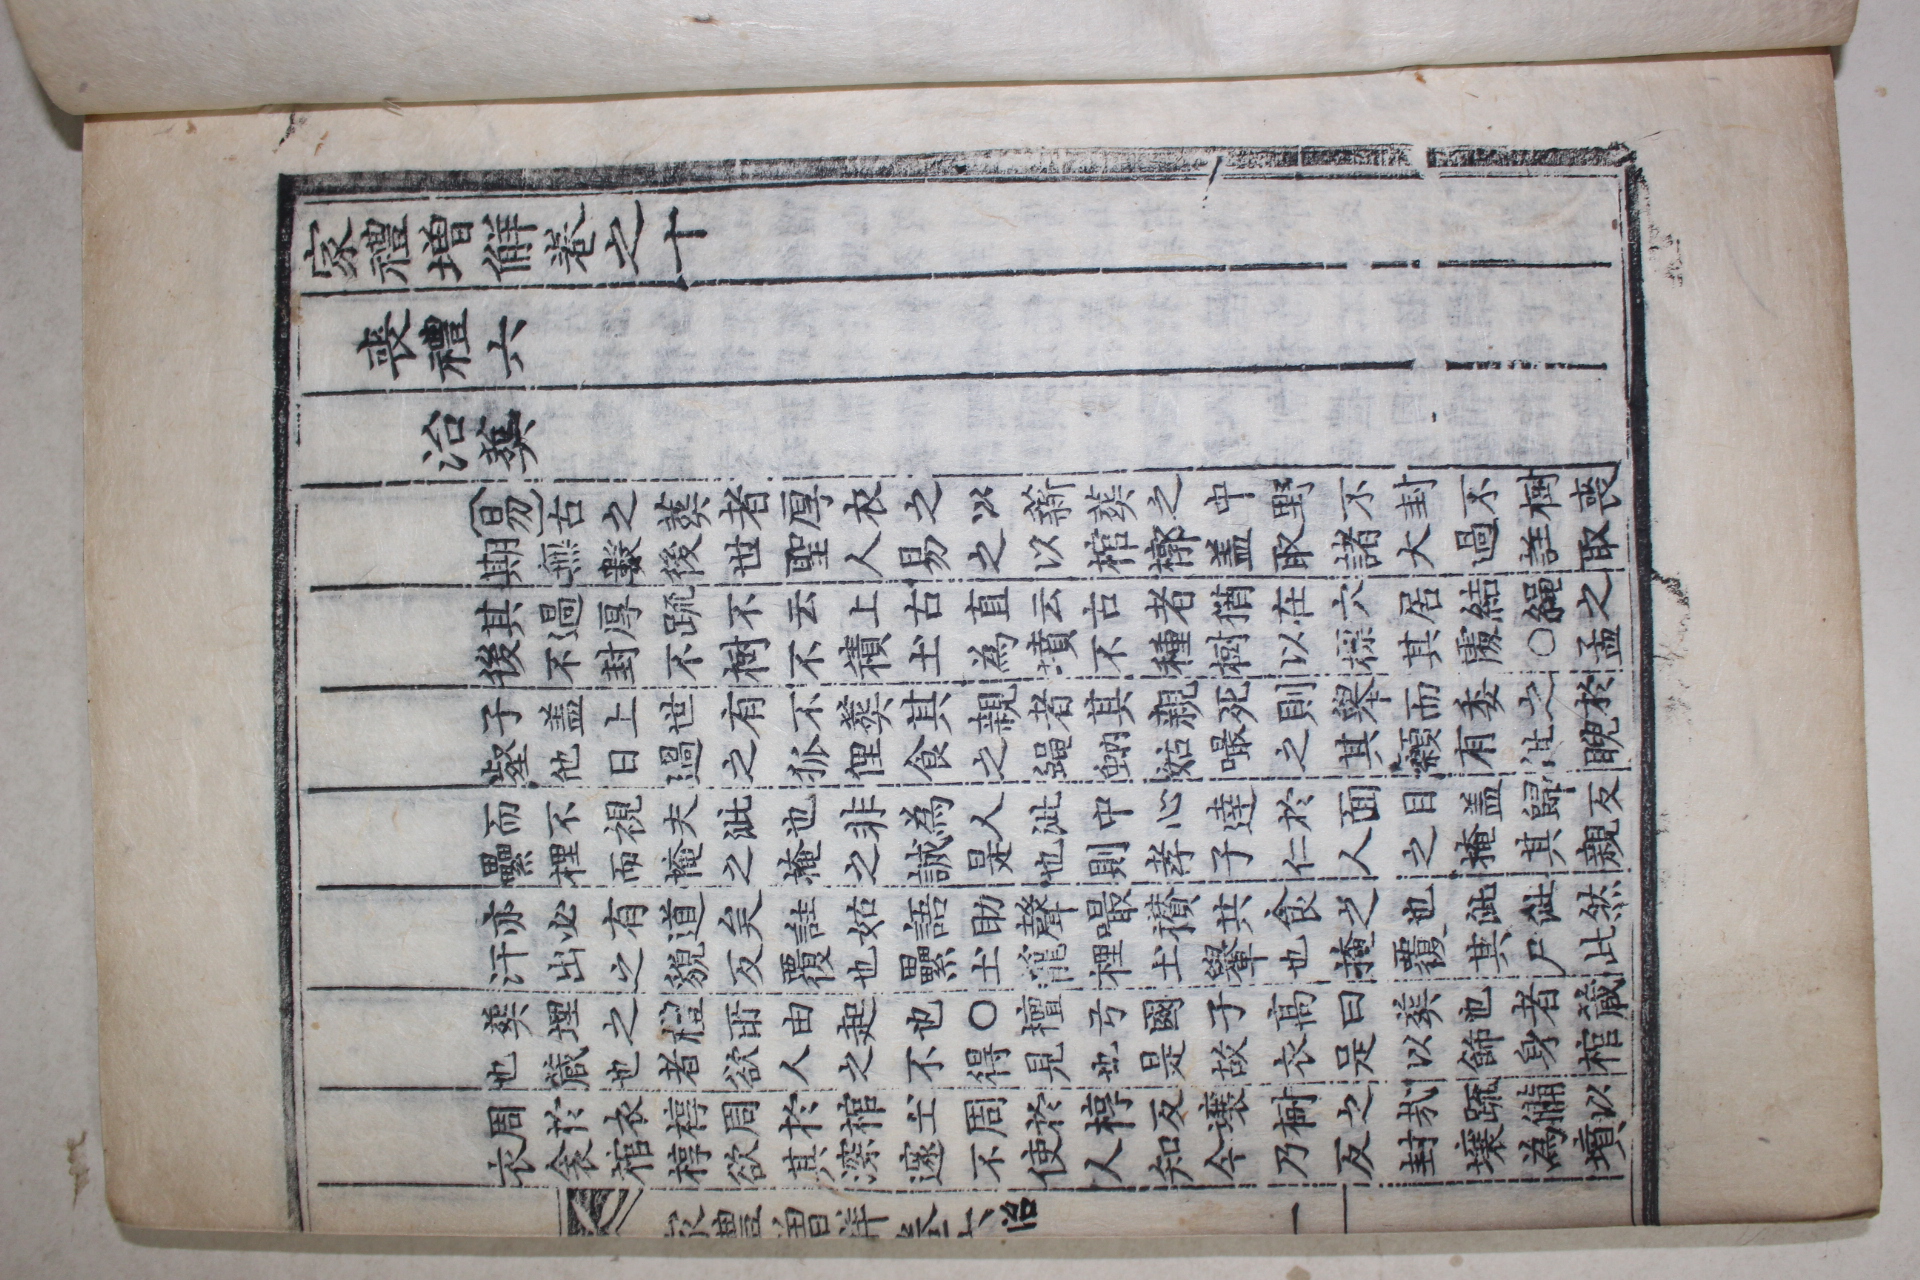 家禮增解卷之十
喪禮六
治葬
易古之葬者厚衣之以薪葬之中野不封不樹喪
期無數後世聖人易之以棺槨盖取諸大過註取
其過厚䟽不云上古直云古者猶在穴居結繩之
後不封不樹不積土為墳不種樹以標其處○孟
子盖上世有不葬其親者其親死則舉而委之於
壑他日過之狐狸食之蝇蚋姑嘬之其顙有泚睨
而不視夫泚也非為人泚中心達於面目盖歸反
虆梩而掩之掩之誠是也則孝子仁人之掩其親
亦必有道矣註姑語助聲嘬攅共食之也泚泚然
汗出之貌反覆也虆土籠梩土轝也掩覆其尸此
葬埋之禮所由起也○檀弓國子高曰葬也者蔵
也蔵也者欲人之不得見也是故衣足以飾身棺
周於衣椁周於棺土周於椁反壤樹之㢤䟽備以
衣衾棺椁欲其深邃不使人知今乃反封壤為墳
家禮增解 卷之 治 一